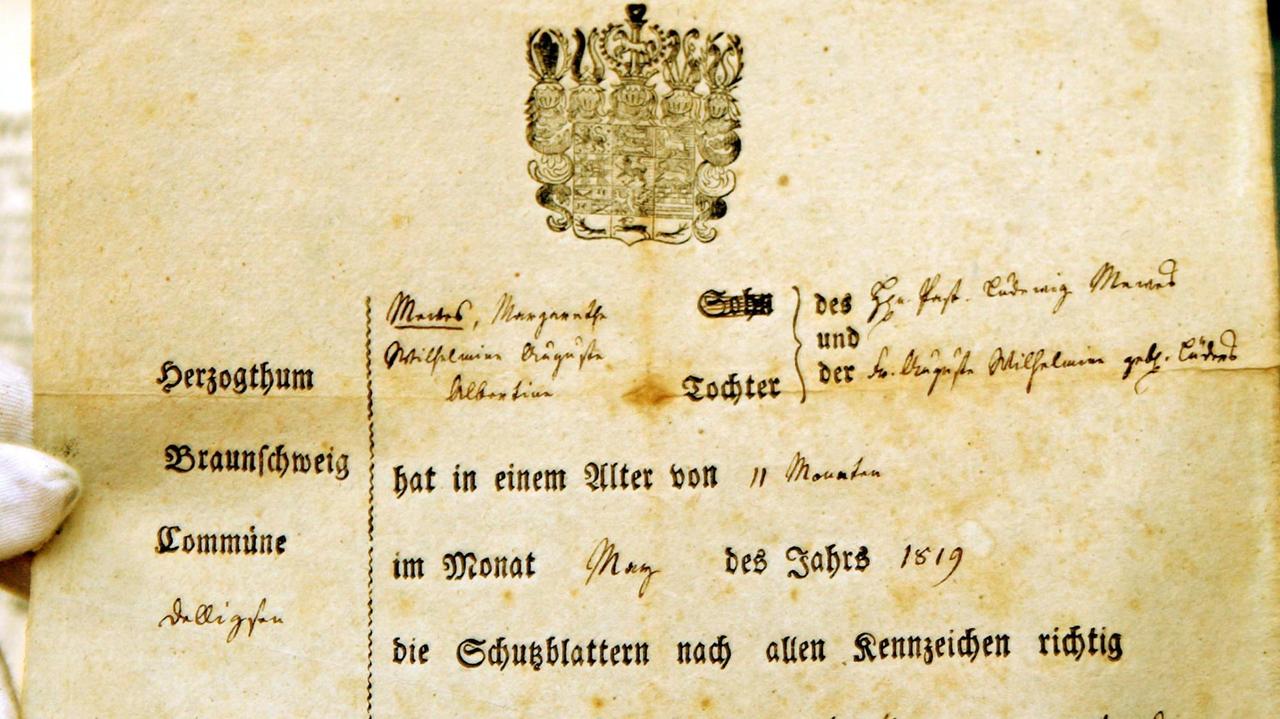 Mewes, Margarethe
Wilhelmine Auguste
Albertine
Sohn
Tochter
des Hrn. Past. Ludewig Mewes
und
der Fr. Auguste Wilhelmine geb. Lüders
Herzogthum
Braunschweig
Commüne
Delligsen
hat in einem Alter von 11 Monaten
im Monat May des Jahrs 1819
die Schutzblattern nach allen Kennzeichen richtig